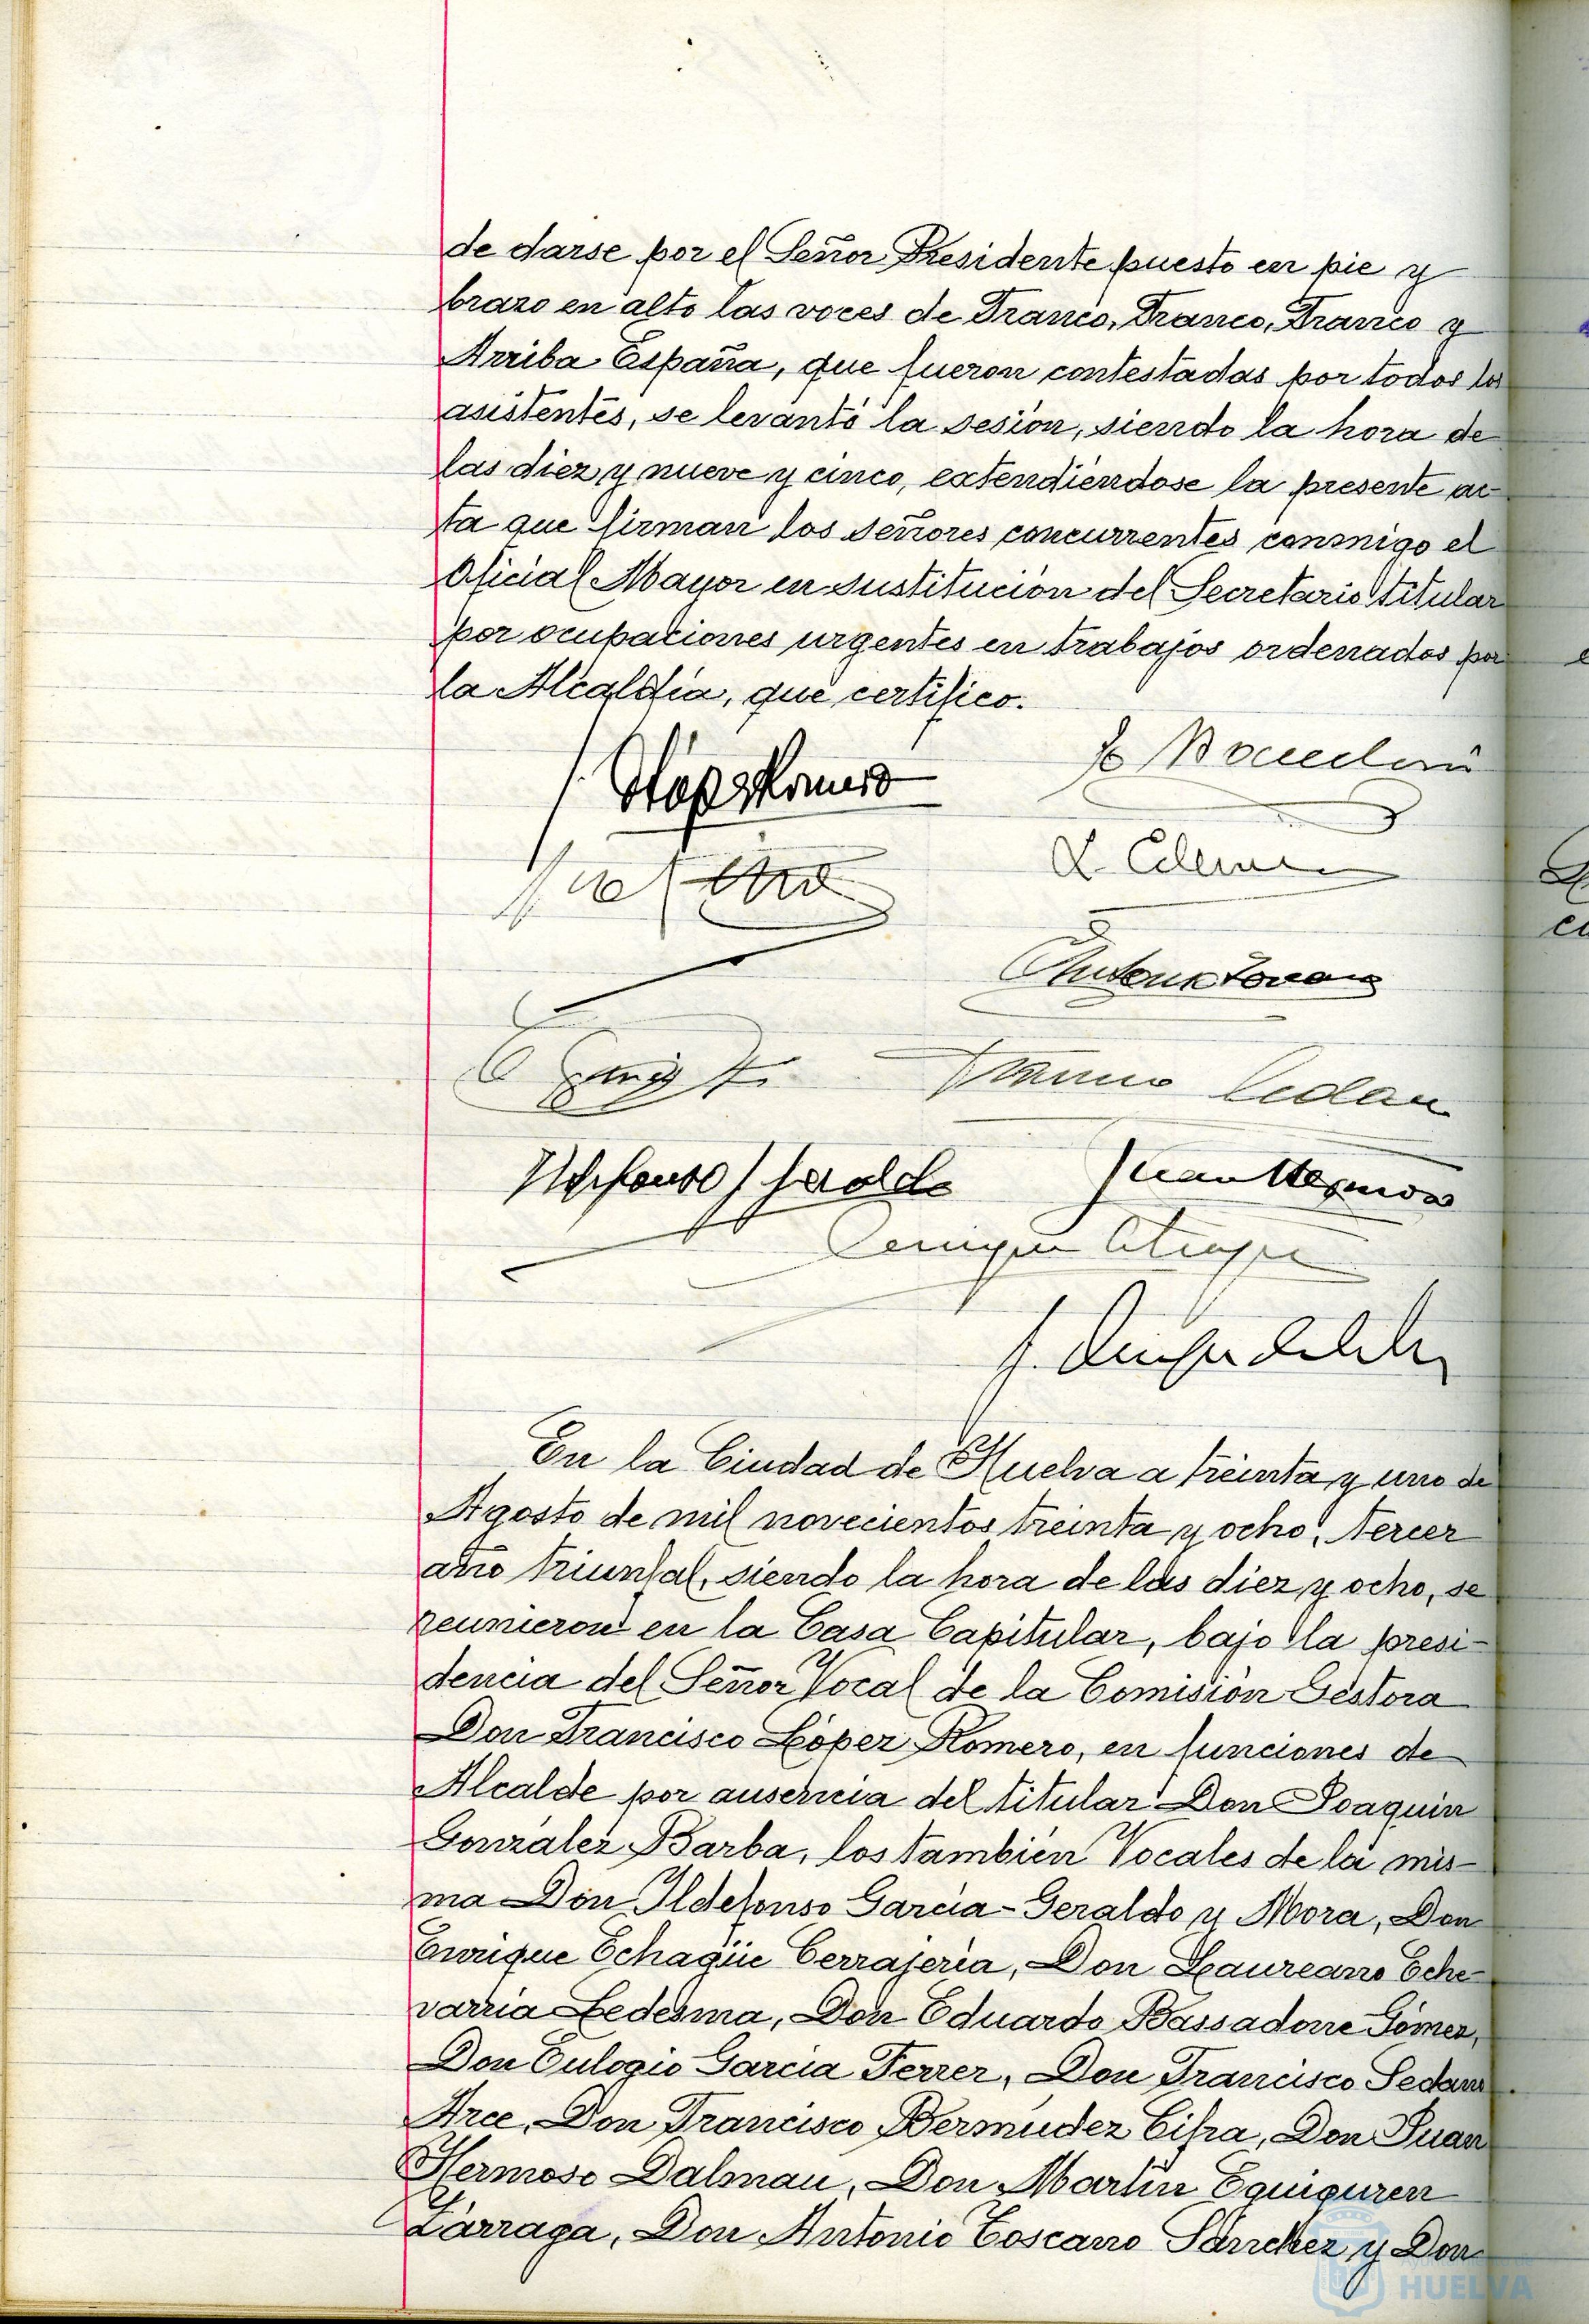 de darse por el Señor Presidente puesto en pie y
brazo en alto las voces de Franco, Franco, Franco y
Arriba España, que fueron contestadas por todos los
asistentes, se levantó la sesión, siendo la hora de
las diez y nueve y cinco, extendiéndose la presente ac-
ta que firman los señores concurrentes conmigo el
Oficial Mayor en sustitución del Secretario titular
por ocupaciones urgentes en trabajos ordenados por
la Alcaldía, que certifico.
Juan Hermoso
En la Ciudad de Huelva a treinta y uno de
Agosto de mil novecientos treinta y ocho, Tercer
año triunfal, siendo la hora de las diez y ocho, se
reunieron en la Casa Capitular, bajo la presi-
dencia del Señor Vocal de la Comisión Gestora
Don Francisco López Romero, en funciones de
Alcalde por ausencia del titular Don Joaquin
González Barba, los también Vocales de la mis-
ma Don Ildefonso Garcia-Geraldo y Mora, Don
Enrique Echagüe Cerrajería, Don Laureano Eche-
varria Ledesma, Don Eduardo Bassadone Gómez,
Don Eulogio Garcia Ferrer, Don Francisco Sedano
Arce, Don Francisco Bermudez Cifra, Don Juan
Hermoso Dalmau, Don Martin Eguiguren
Lárraga, Don Antonio Toscano Sánchez y Don
HUELVA